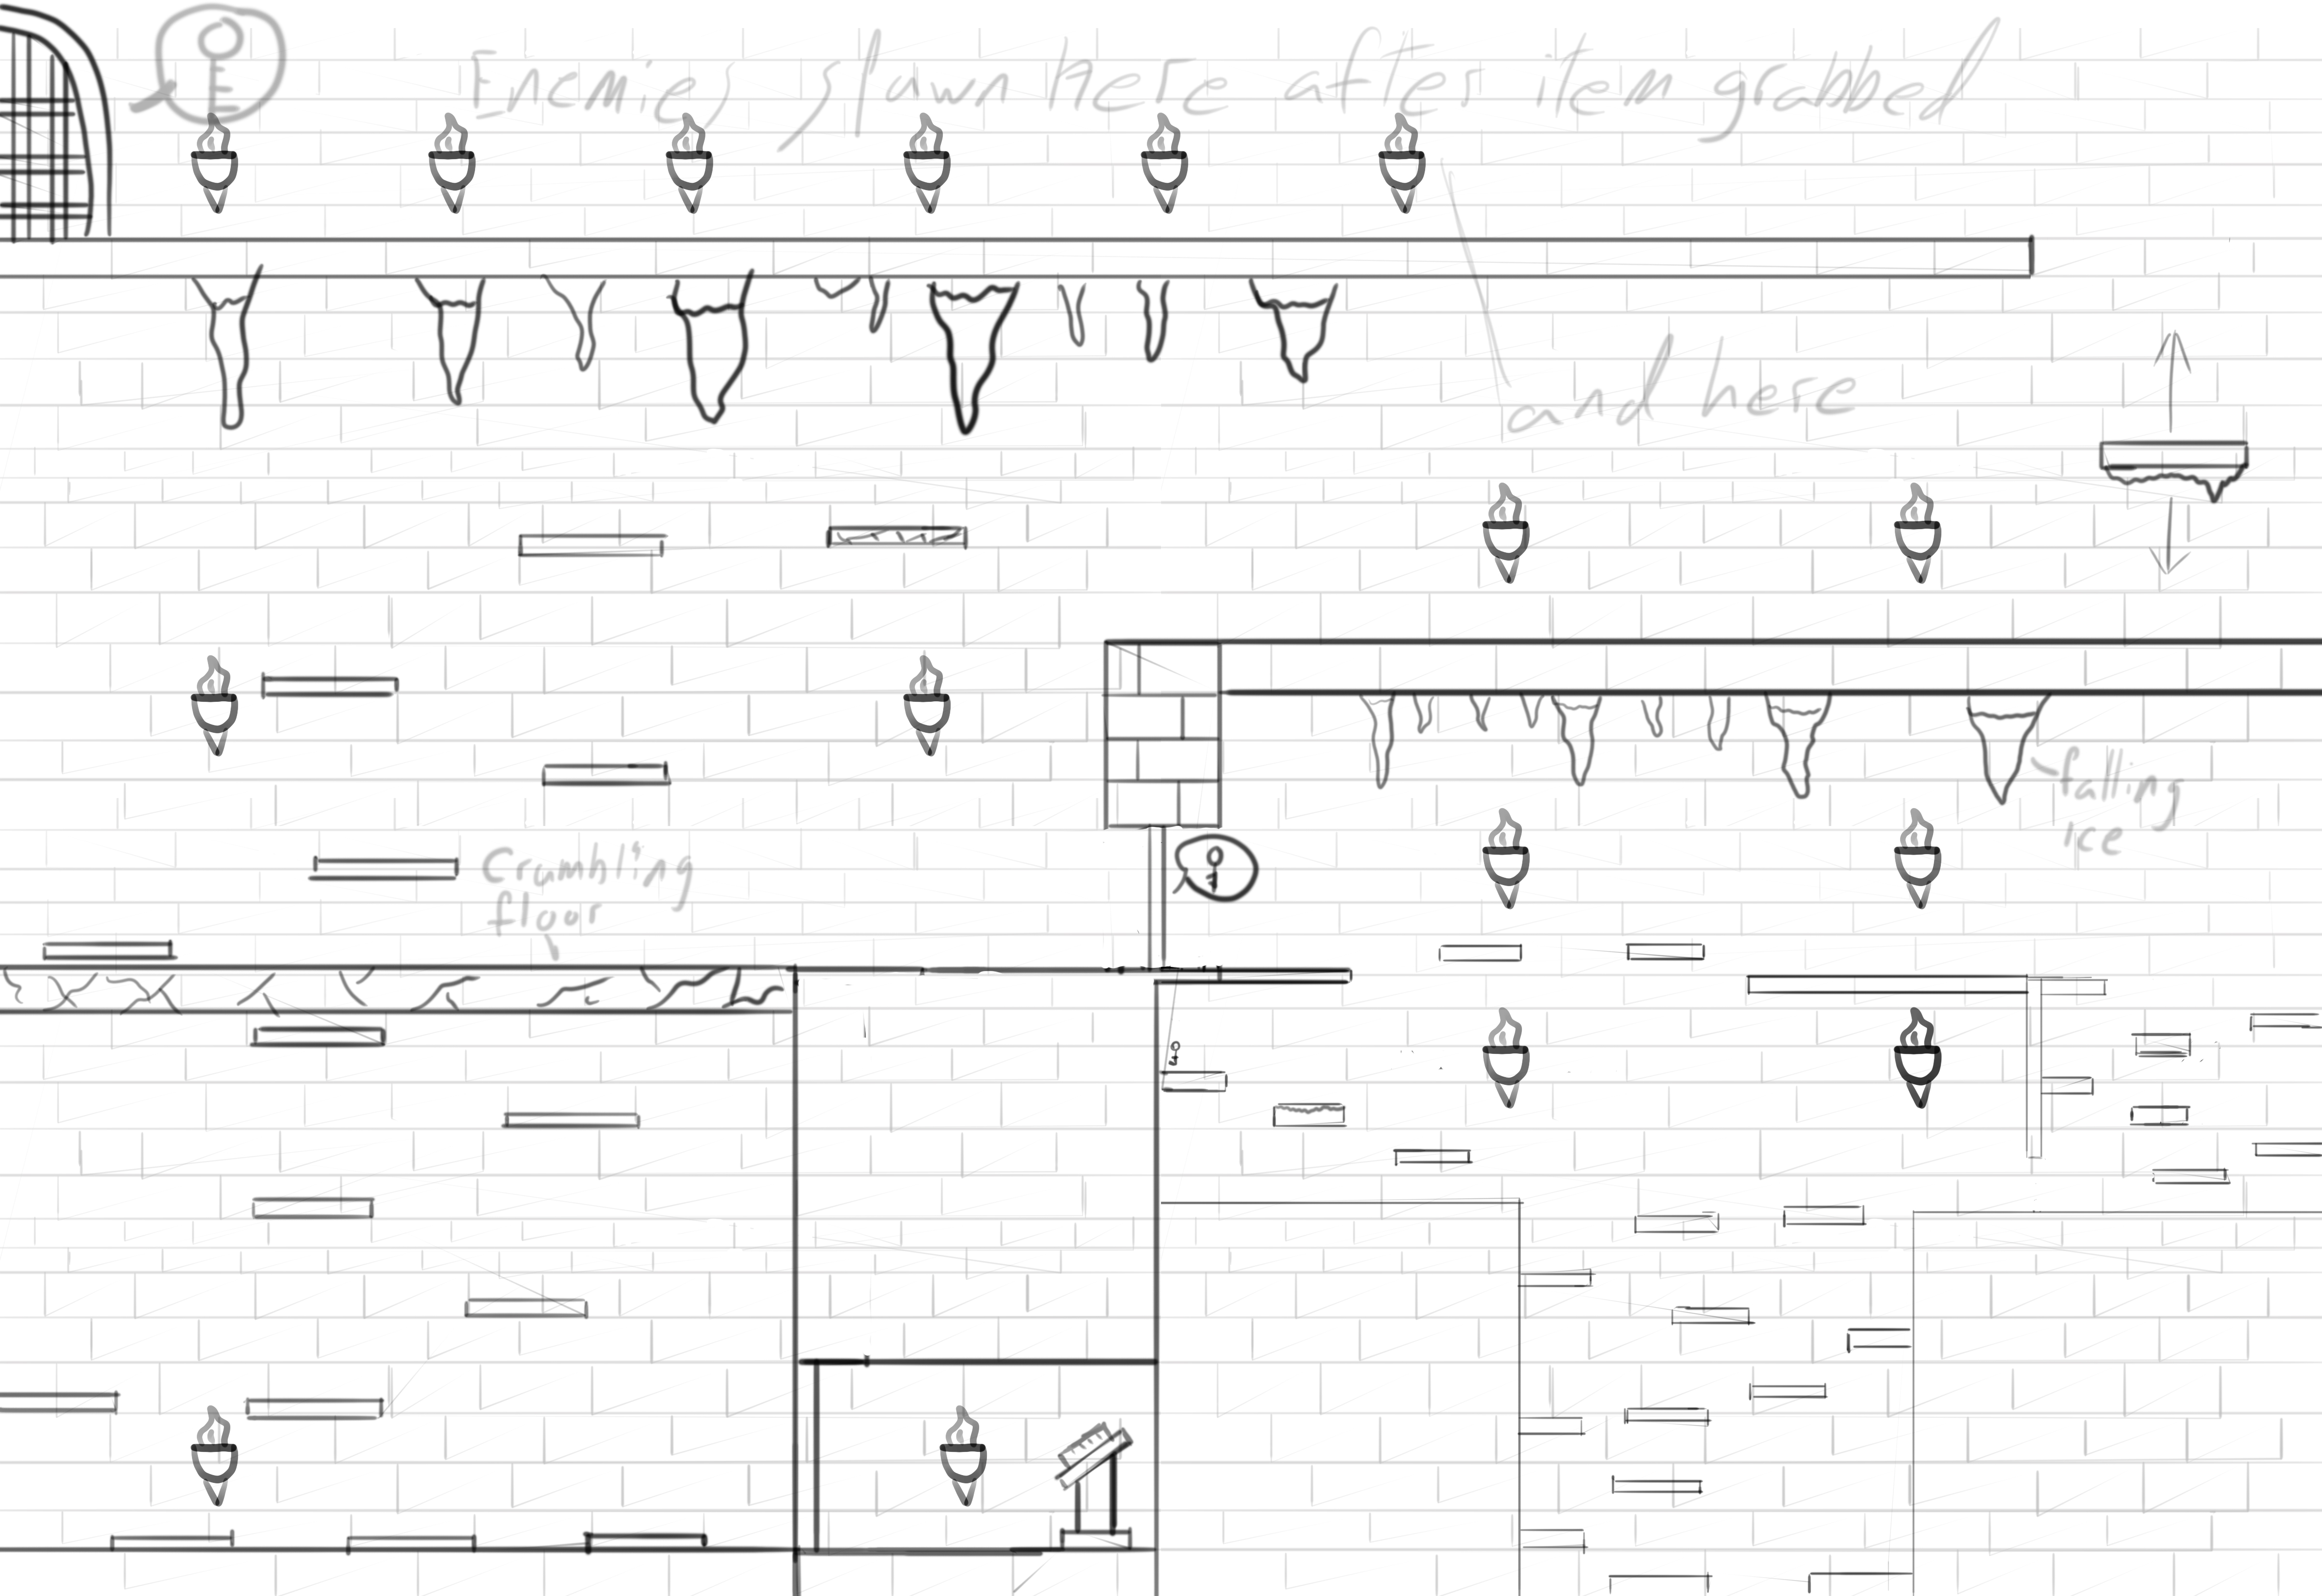 Enemies spawn here after item grabbed
and here
falling
ice
Crumbling
floor